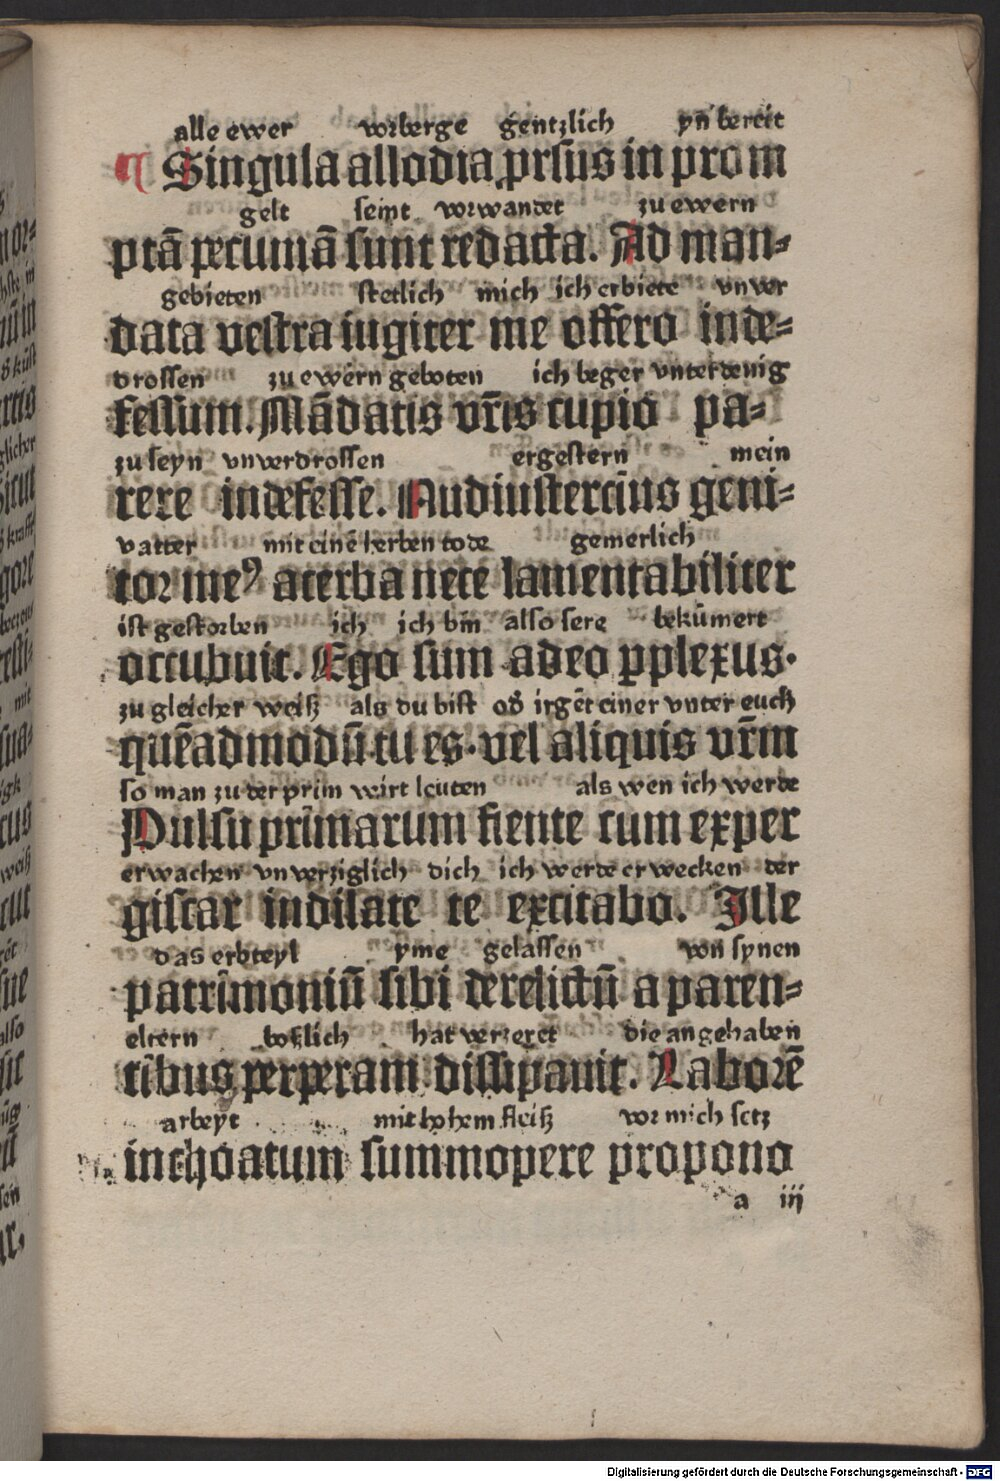 alle ewer vorberge gentzlich yn bereit
¶ Singula allodia ꝓrsus in prom
gelt seint vorwandet zu ewern
ptā pecuniā sunt redacta. Ad man-
gebieten stetlich mich ich erbiete vnver
data vestra iugiter me offero inde-
drossen zu ewern geboten ich beger vnterdenig
fessum. Mādatis vr̄is cupio pa-
zu seyn vnverdrossen ergestern mein
rere indefesse. Nudiustercius geni-
vatter mit einē herben tode gemerlich
tor meꝰ acerba nece lamentabiliter
ist gestorben ich ich bin also sere bekūmert
occubuit. Ego sum adeo ꝑplexus.
zu gleicher weiß als du bist oď irgēt einer vnter euch
quēadmodū tu es. vel aliquis vr̄m
so man zu der prim wirt leuten als wen ich werde
Pulsu primarum fiente cum exper
erwachen vnverziglich dich ich werde erwecken der
giscar indilate te excitabo. Ille
das erbteyl yme gelassen von synen
patrimoniū sibi derelictū a paren-
eltern boßlich hat verzeret die angehaben
tibus perperam dissipauit. Laborē
arbeyt mit hohem fleiß vor mich setz
inchoatum summopere propono
a iij
Digitalisierung gefördert durch die Deutsche Forschungsgemeinschaft - DFG